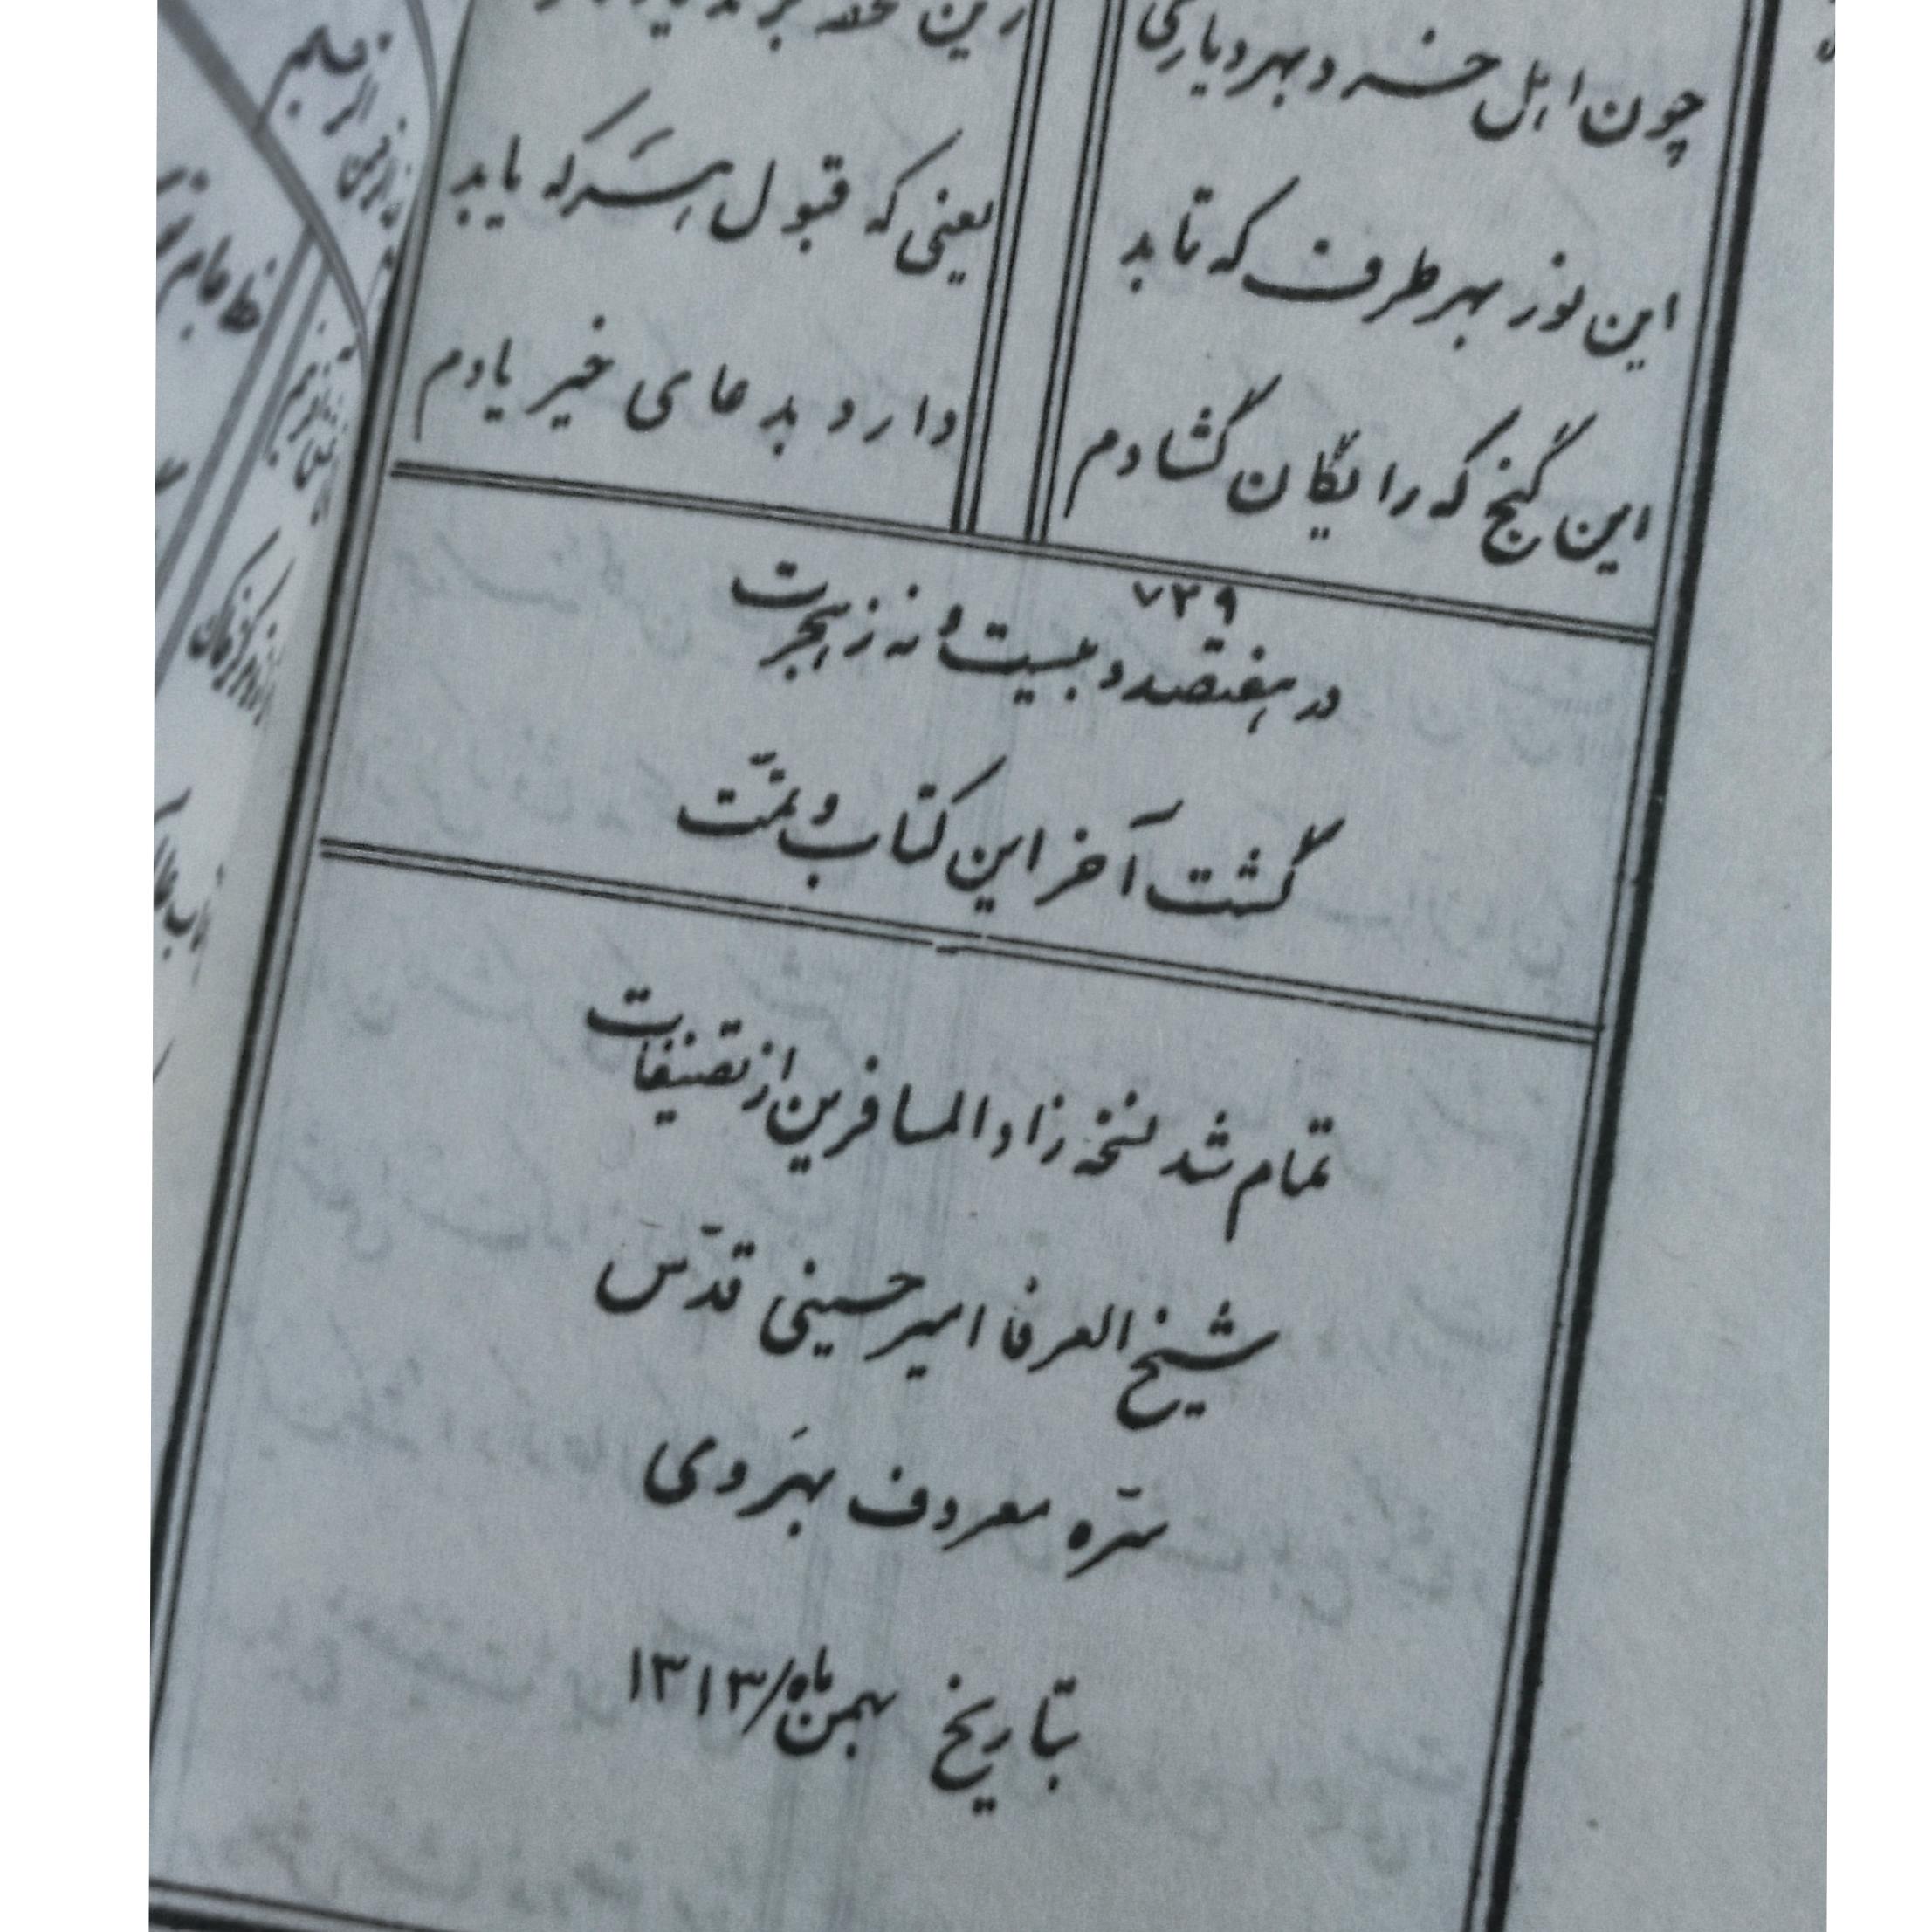 چون اہل خرد بهر دیاری
زین تحفه برند
این نور بهر طرف که تابد
یعنی که قبول هر که یابد
این گنج که رایگان گشادم
دارد بدعای خیر یادم
۷۲۹
در هفتصد و بیست و نه ز هجرت
گشت آخر این کتاب و تمّت
تمام شد نسخه زاد المسافرین از تصنیفات
شیخ العرفا امیر حسینی قدّس
سرّه معروف بهَروی
بتاریخ بهمن ماه/۱۳۱۳